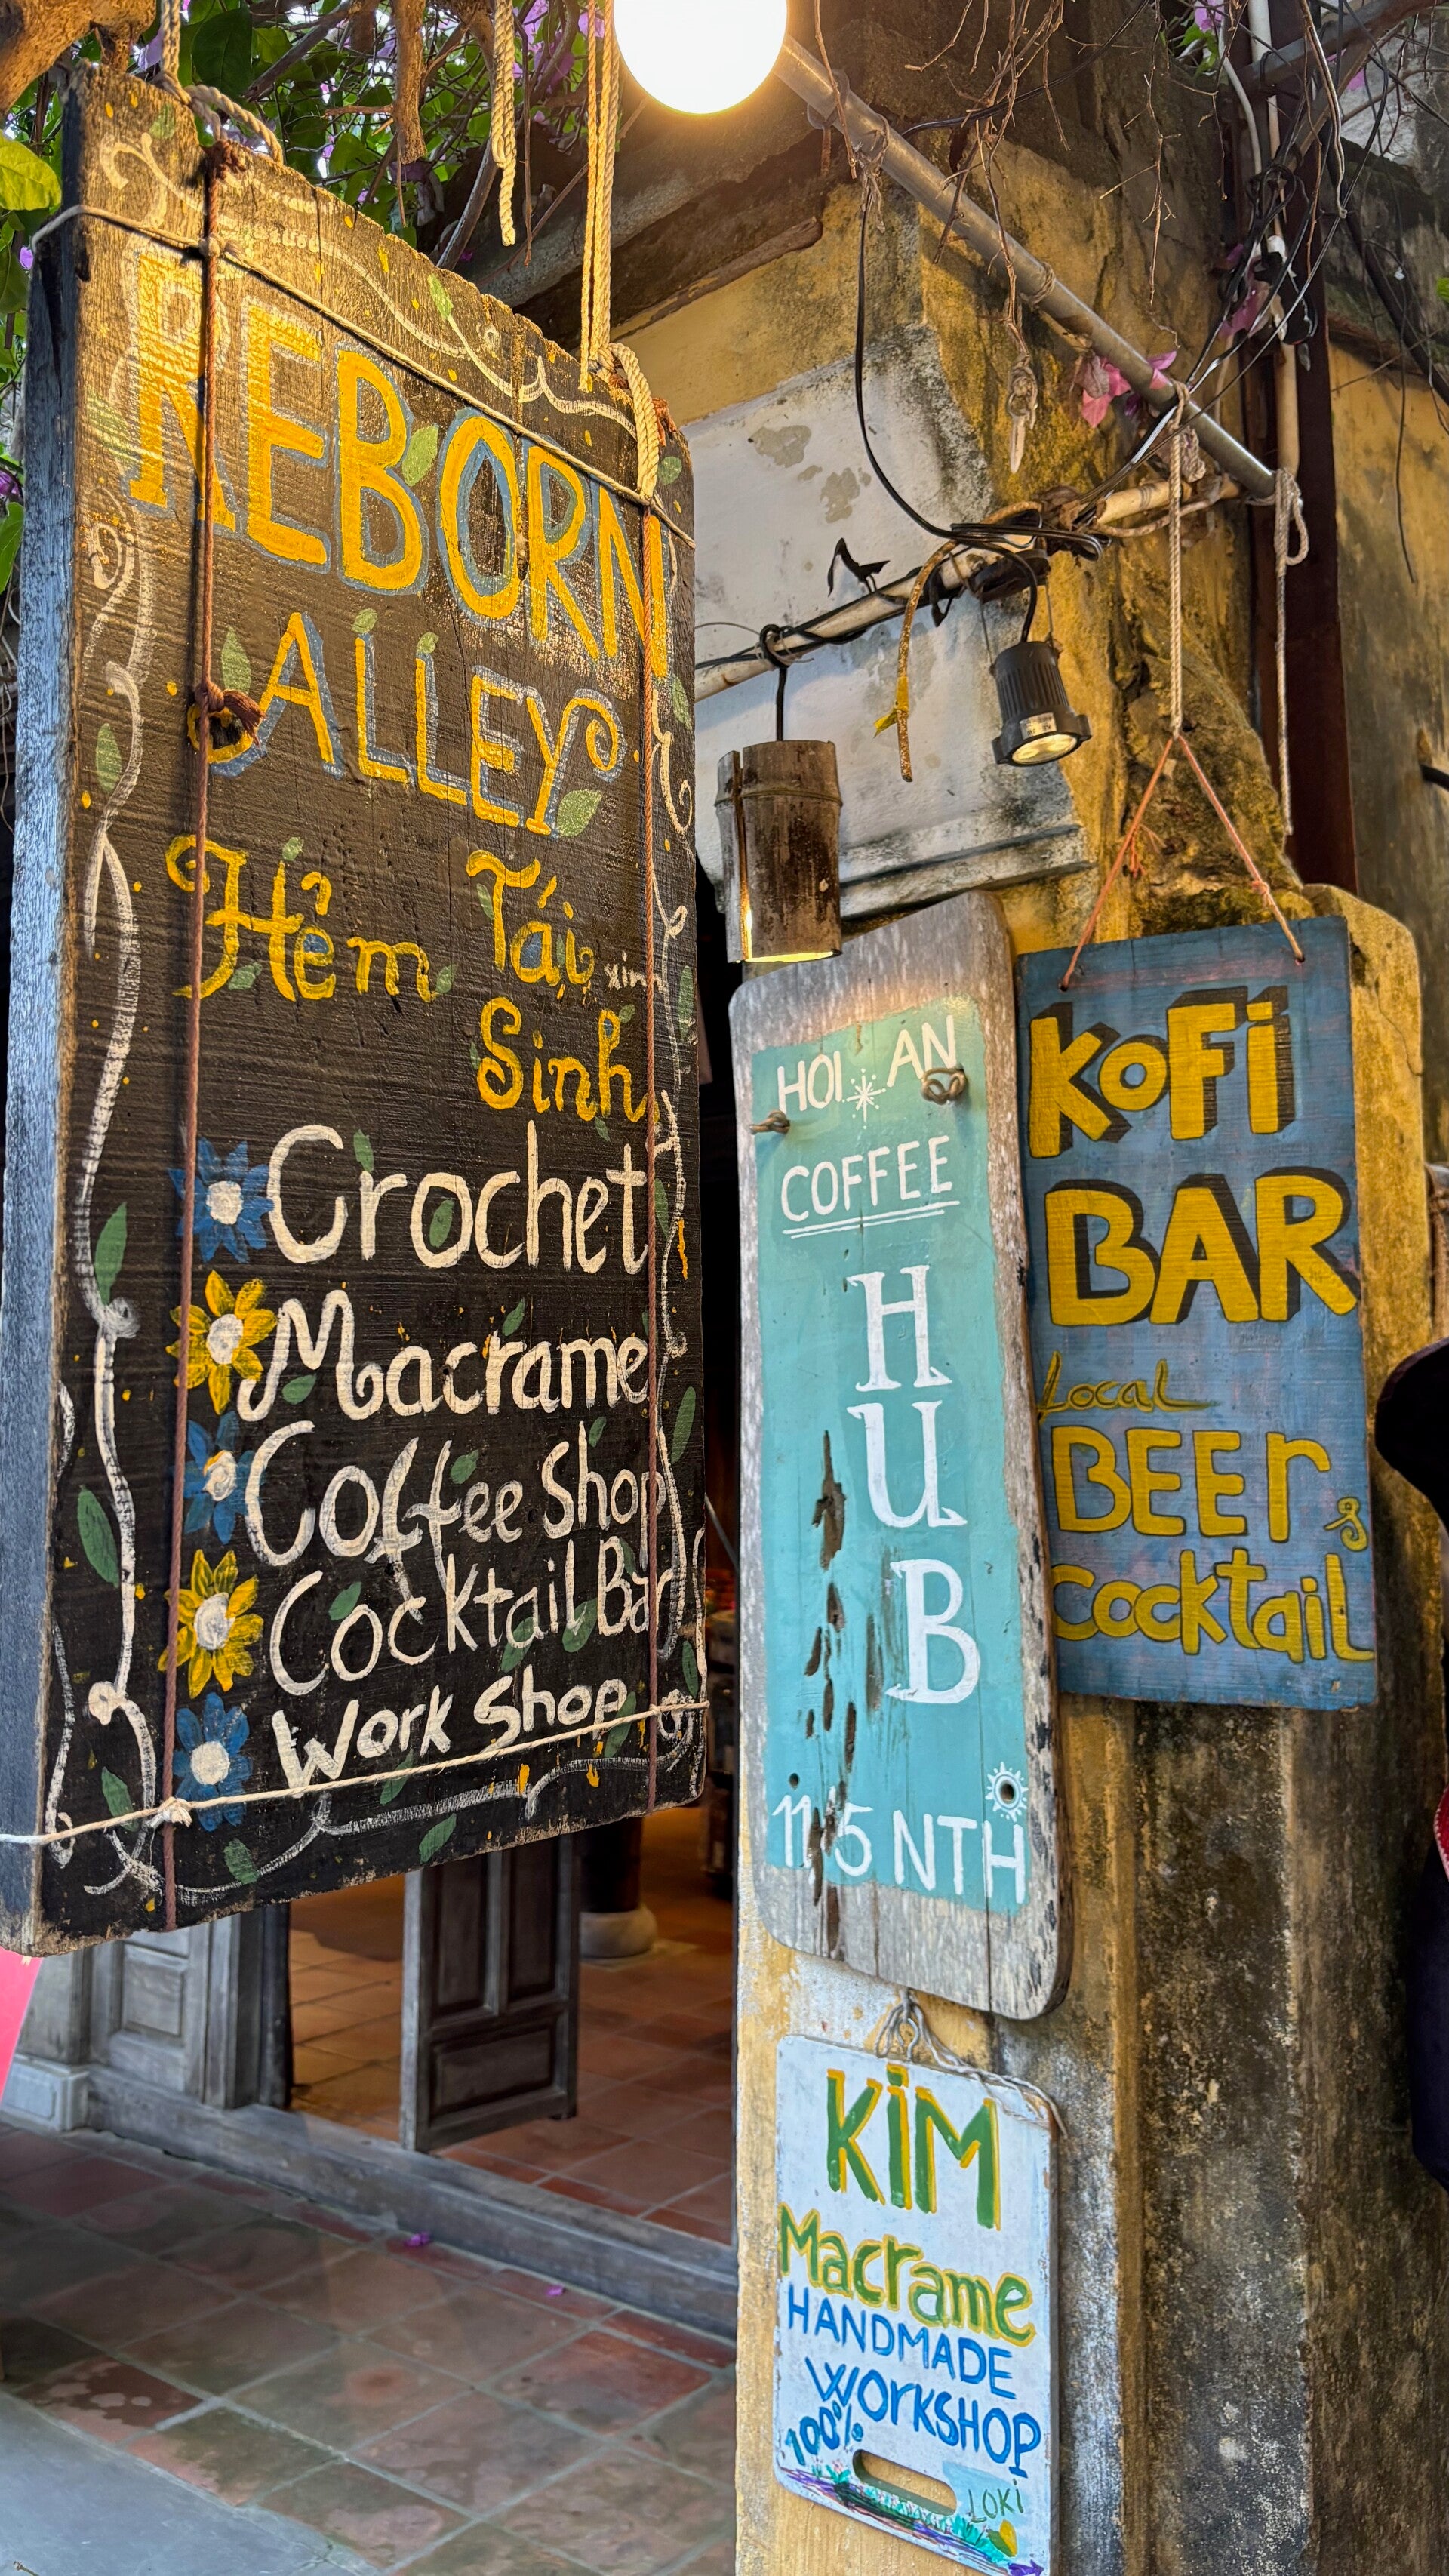 REBORN
ALLEY
Hẻm Tái
xin
Sinh
Crochet
Macrame
Coffee Shop
Cocktail Bar
Work Shop
HOI AN
COFFEE
HUB
115 NTH
KoFi
BAR
Local
BEErs
Cocktail
KiM
Macrame
HANDMADE
WORKSHOP
100%
LOKi